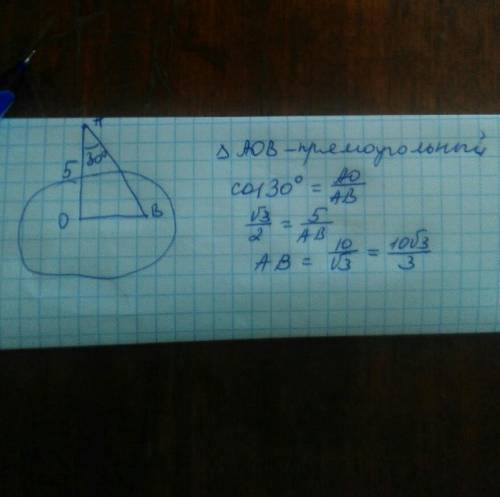 A
30°
5
O
B
Δ AOB - прямоугольный
cos 30° = AO/AB
√3/2 = 5/AB
AB = 10/√3 = 10√3/3